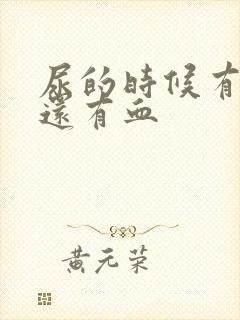 尿的時候有
還有血
黃元荣